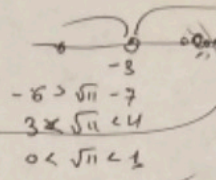 -3
-6 > √11 - 7
3 < √11 < 4
0 < √11 < 1